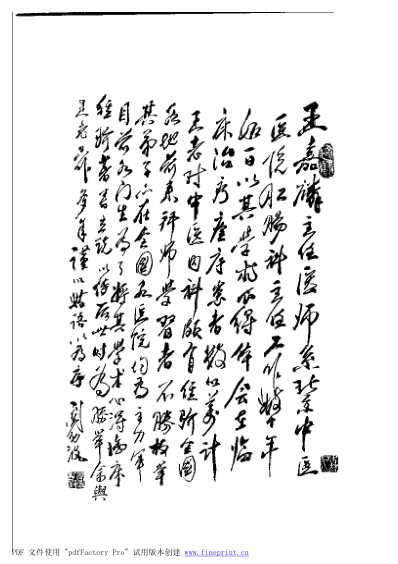 王嘉麟主任医师系北京中医
医院肛肠科主任工作数十年
以其学术心得体会在临
床治疗痊愈患者数以万计
王老对中医内科颇有经验全国
各地前来拜师学习者不胜枚举
其弟子在全国各医院均为主力军
目前为门生为了将其学术心得临床
经验著书立说以传后此时为盛举余与
王老多年谨以数语以为序
PDF 文件使用 "pdfFactory Pro" 试用版本创建 www.fineprint.cn